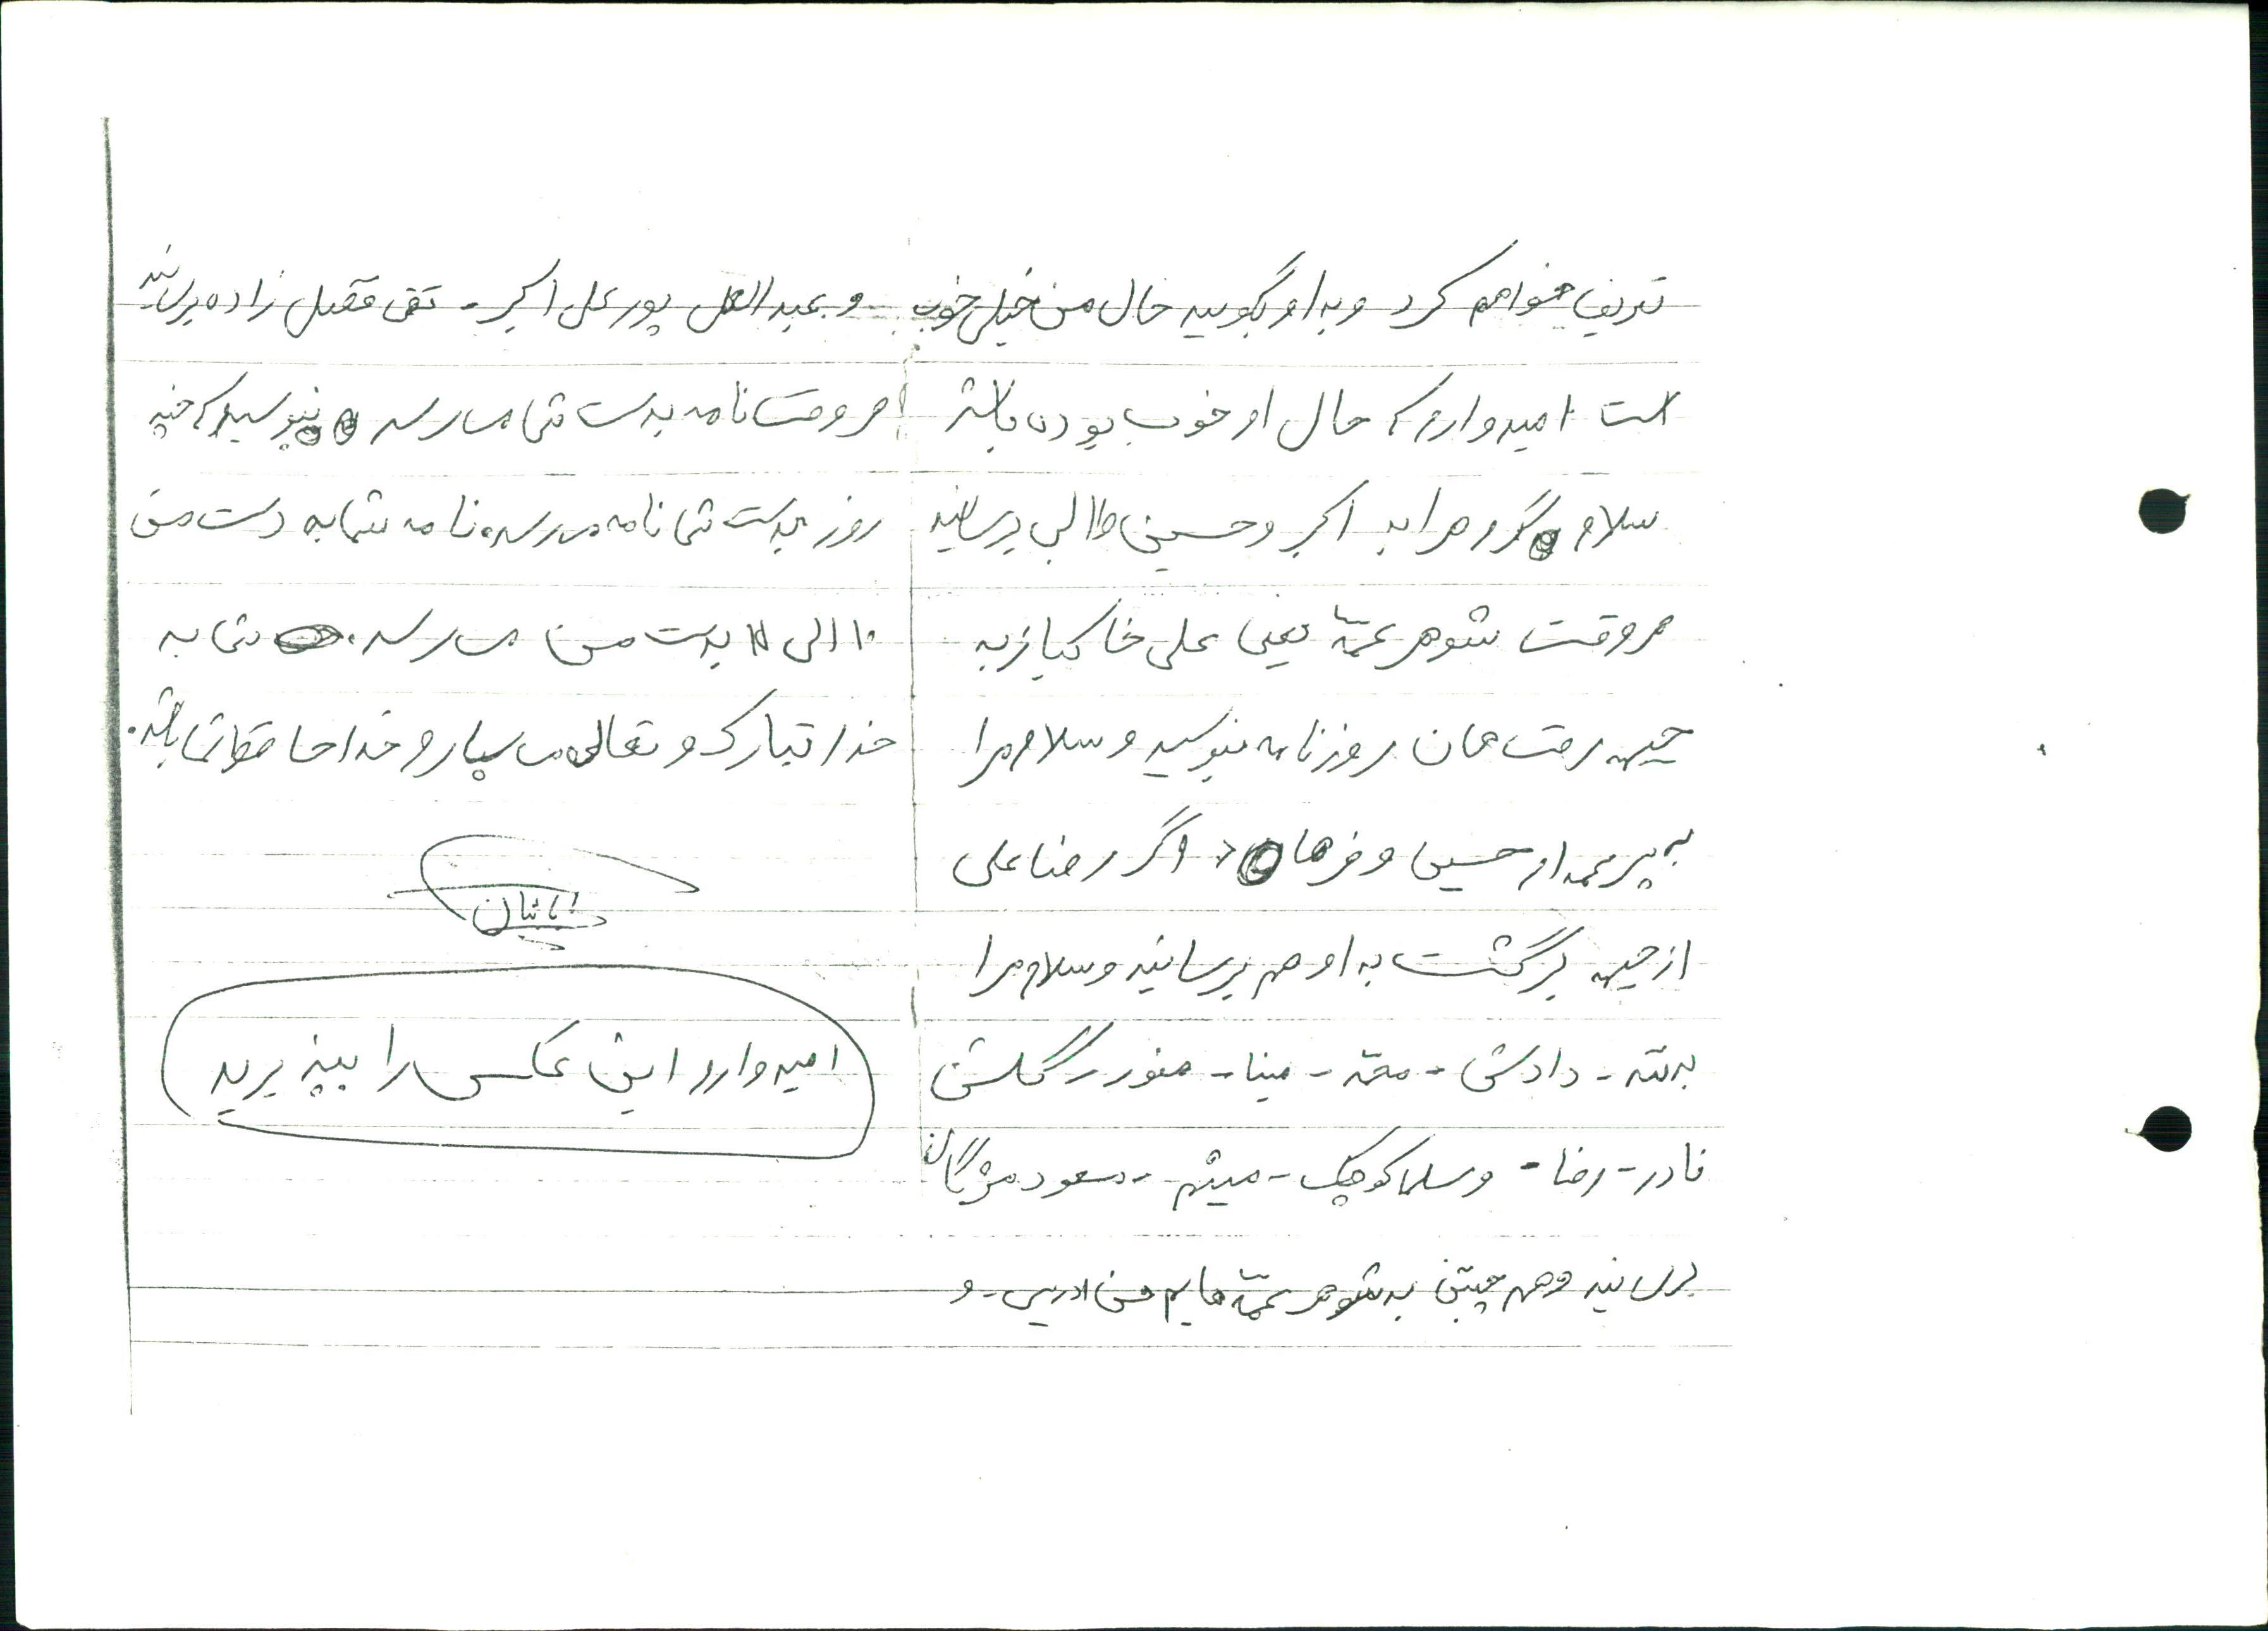 تعریف خواهم کرد و به او بگویید حال من خیلی خوب
است امیدوارم که حال او خوب بوده باشد
سلام گرم مرا به اکبر و حسین طالبی برسانید
هر وقت شوهر عمّه یعنی علی خاکباز به
جبهه رفت همان روز نامه بنویسید و سلام مرا
به پسر عمه ام حسین و فرهاد اگر رضا علی
از جبهه برگشت به او هم برسانید و سلام مرا
به ننه - داداش - عمّه - مینا - منور - گلشن
نادر - رضا - و سلما کوچک - میثم - مسعود مژگان
برسانید و هم چنین به شوهر عمّه هایم ادریس - و
و عبدالعلی پور علی اکبر - تقی زاده برسانید
هر وقت نامه بدست شما می رسد بنویسید که چند
روز بدست شما نامه می رسد نامه شما به دست من
۱۰ الی بدست من می رسد. شما به
خدا تبارک و تعالی می سپارم خدا حافظ شما باشد.
امیدوارم این عکس را بپذیرید